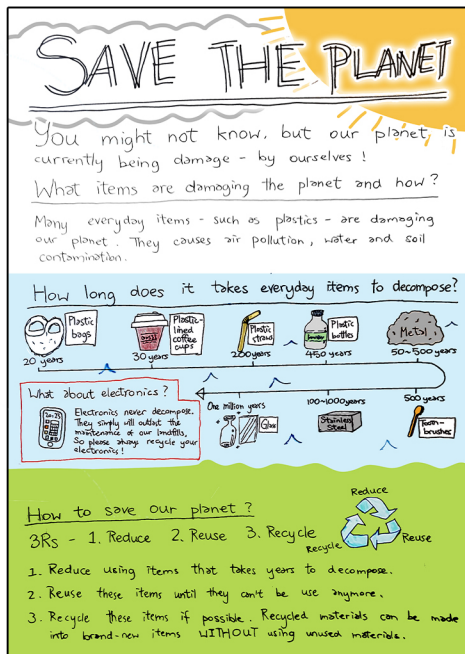 SAVE THE PLANET
You might not know, but our planet is
currently being damage - by ourselves!
What items are damaging the planet and how?
Many everyday items - such as plastics - are damaging
our planet. They causes air pollution, water and soil
contamination.
How long does it takes everyday items to decompose?
Plastic
bags
20 years
Plastic-
lined
coffee
cups
30 years
Plastic
straws
200 years
Plastic
bottles
450 years
Metal
50~500 years
What about electronics?
Electronics never decompose.
They simply will outlast the
maintenance of our landfills.
So please always recycle your
electronics!
One million years
Glass
100~1000 years
Stainless
Steel
500 years
Tooth-
brushes
How to save our planet?
3Rs - 1. Reduce 2. Reuse 3. Recycle
Reduce
Reuse
Recycle
1. Reduce using items that takes years to decompose.
2. Reuse these items until they can't be use anymore.
3. Recycle these items if possible. Recycled materials can be made
into brand-new items WITHOUT using unused materials.